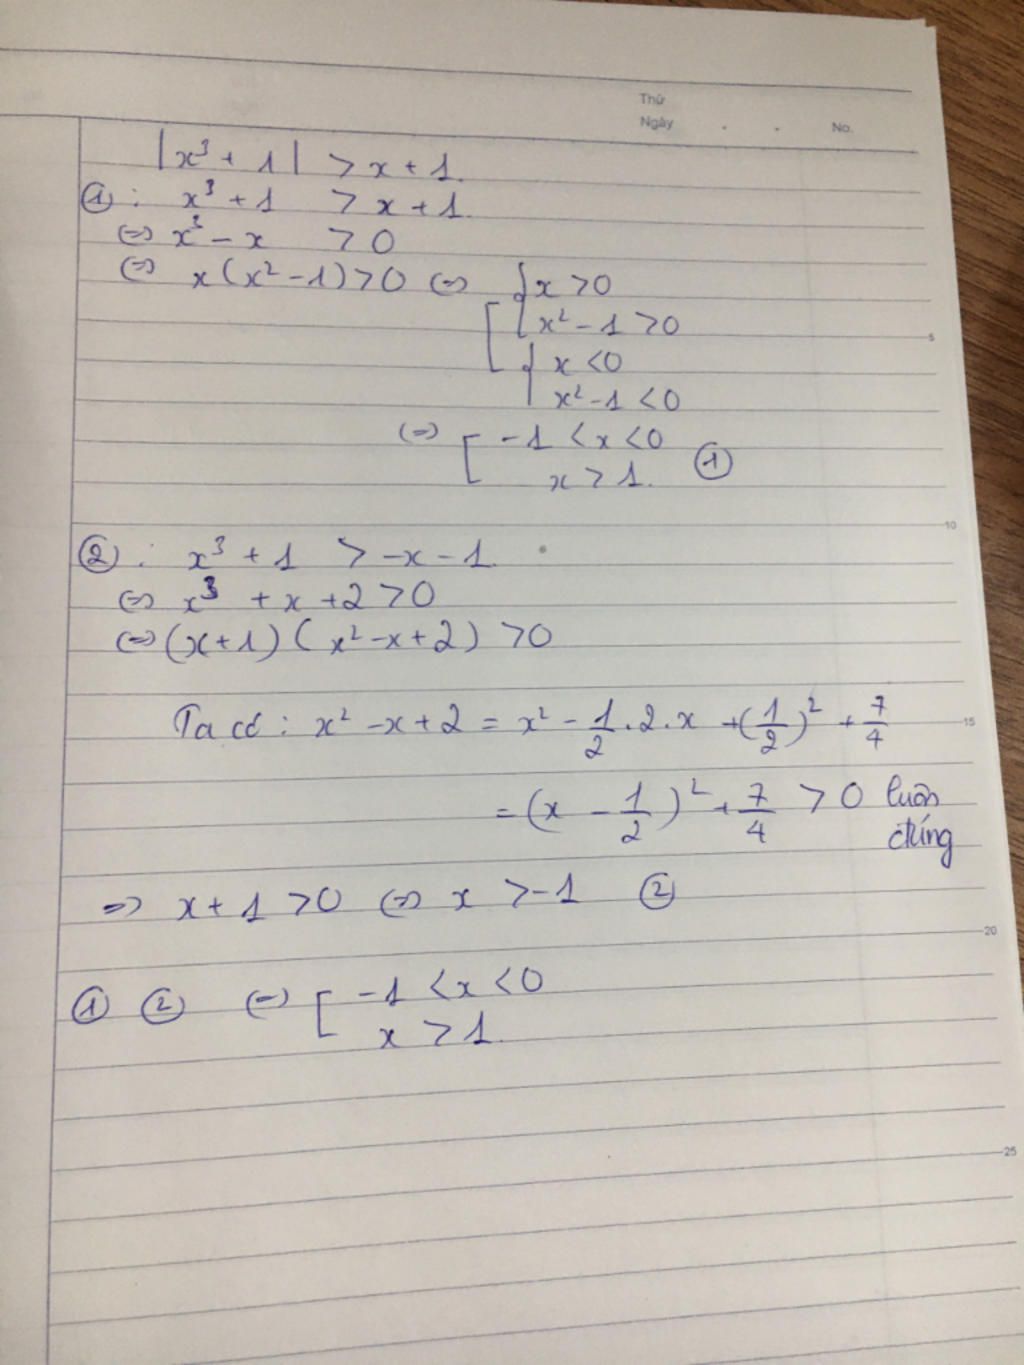 Thứ
Ngày . . No.
|x³ + 1| > x + 1.
①: x³ + 1 > x + 1.
⇔ x³ - x > 0
⇔ x(x² - 1) > 0 ⇔ [ { x > 0
x² - 1 > 0
5
{ x < 0
x² - 1 < 0
⇔ [ -1 < x < 0
x > 1. ①
10
②: x³ + 1 > -x - 1.
⇔ x³ + x + 2 > 0
⇔ (x + 1)(x² - x + 2) > 0
Ta có: x² - x + 2 = x² - 1/2 . 2 . x + (1/2)² + 7/4
15
= (x - 1/2)² + 7/4 > 0 luôn
đúng
⇒ x + 1 > 0 ⇔ x > -1 ②
20
① ② ⇔ [ -1 < x < 0
x > 1.
25